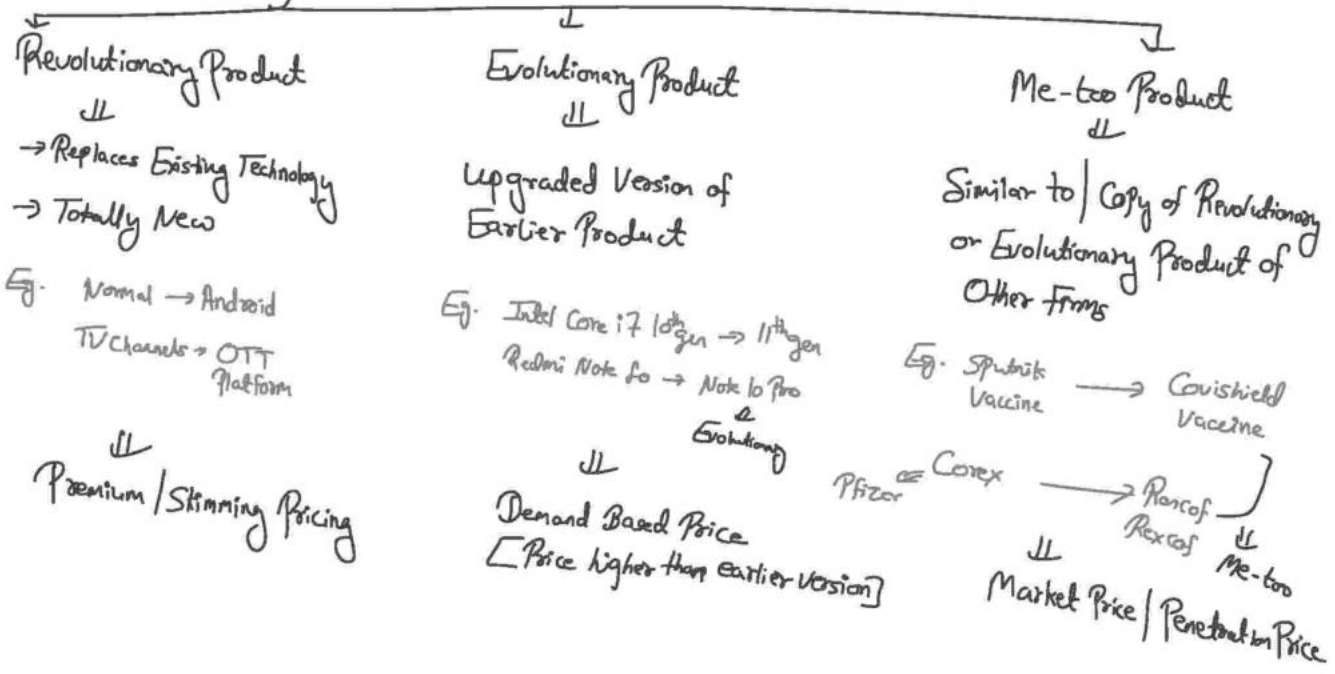 Revolutionary Product
→ Replaces Existing Technology
→ Totally New
Eg. Normal → Android
TV Channels → OTT
Platform
Premium / Skimming Pricing
Evolutionary Product
Upgraded Version of
Earlier Product
Eg. Intel Core i7 10th gen → 11th gen
Redmi Note 10 → Note 10 Pro
Evolutionary
Demand Based Price
[Price higher than earlier version]
Me-too Product
Similar to / Copy of Revolutionary
or Evolutionary Product of
Other Firms
Eg. Sputnik → Covishield
Vaccine Vaccine
Pfizer Corex → Roscof
Rexcof
Me-too
Market Price / Penetration Price